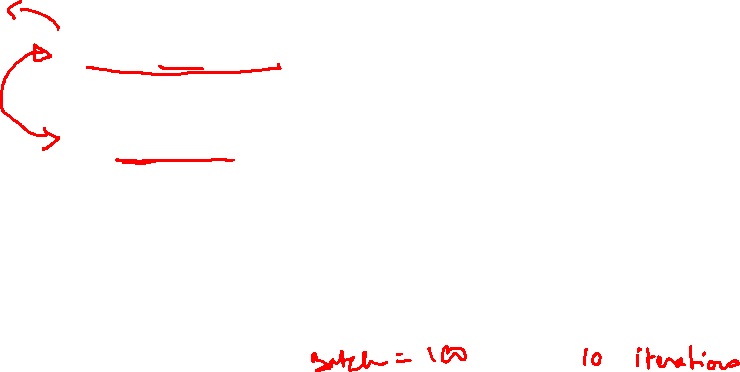 Batch = 100 10 iterations